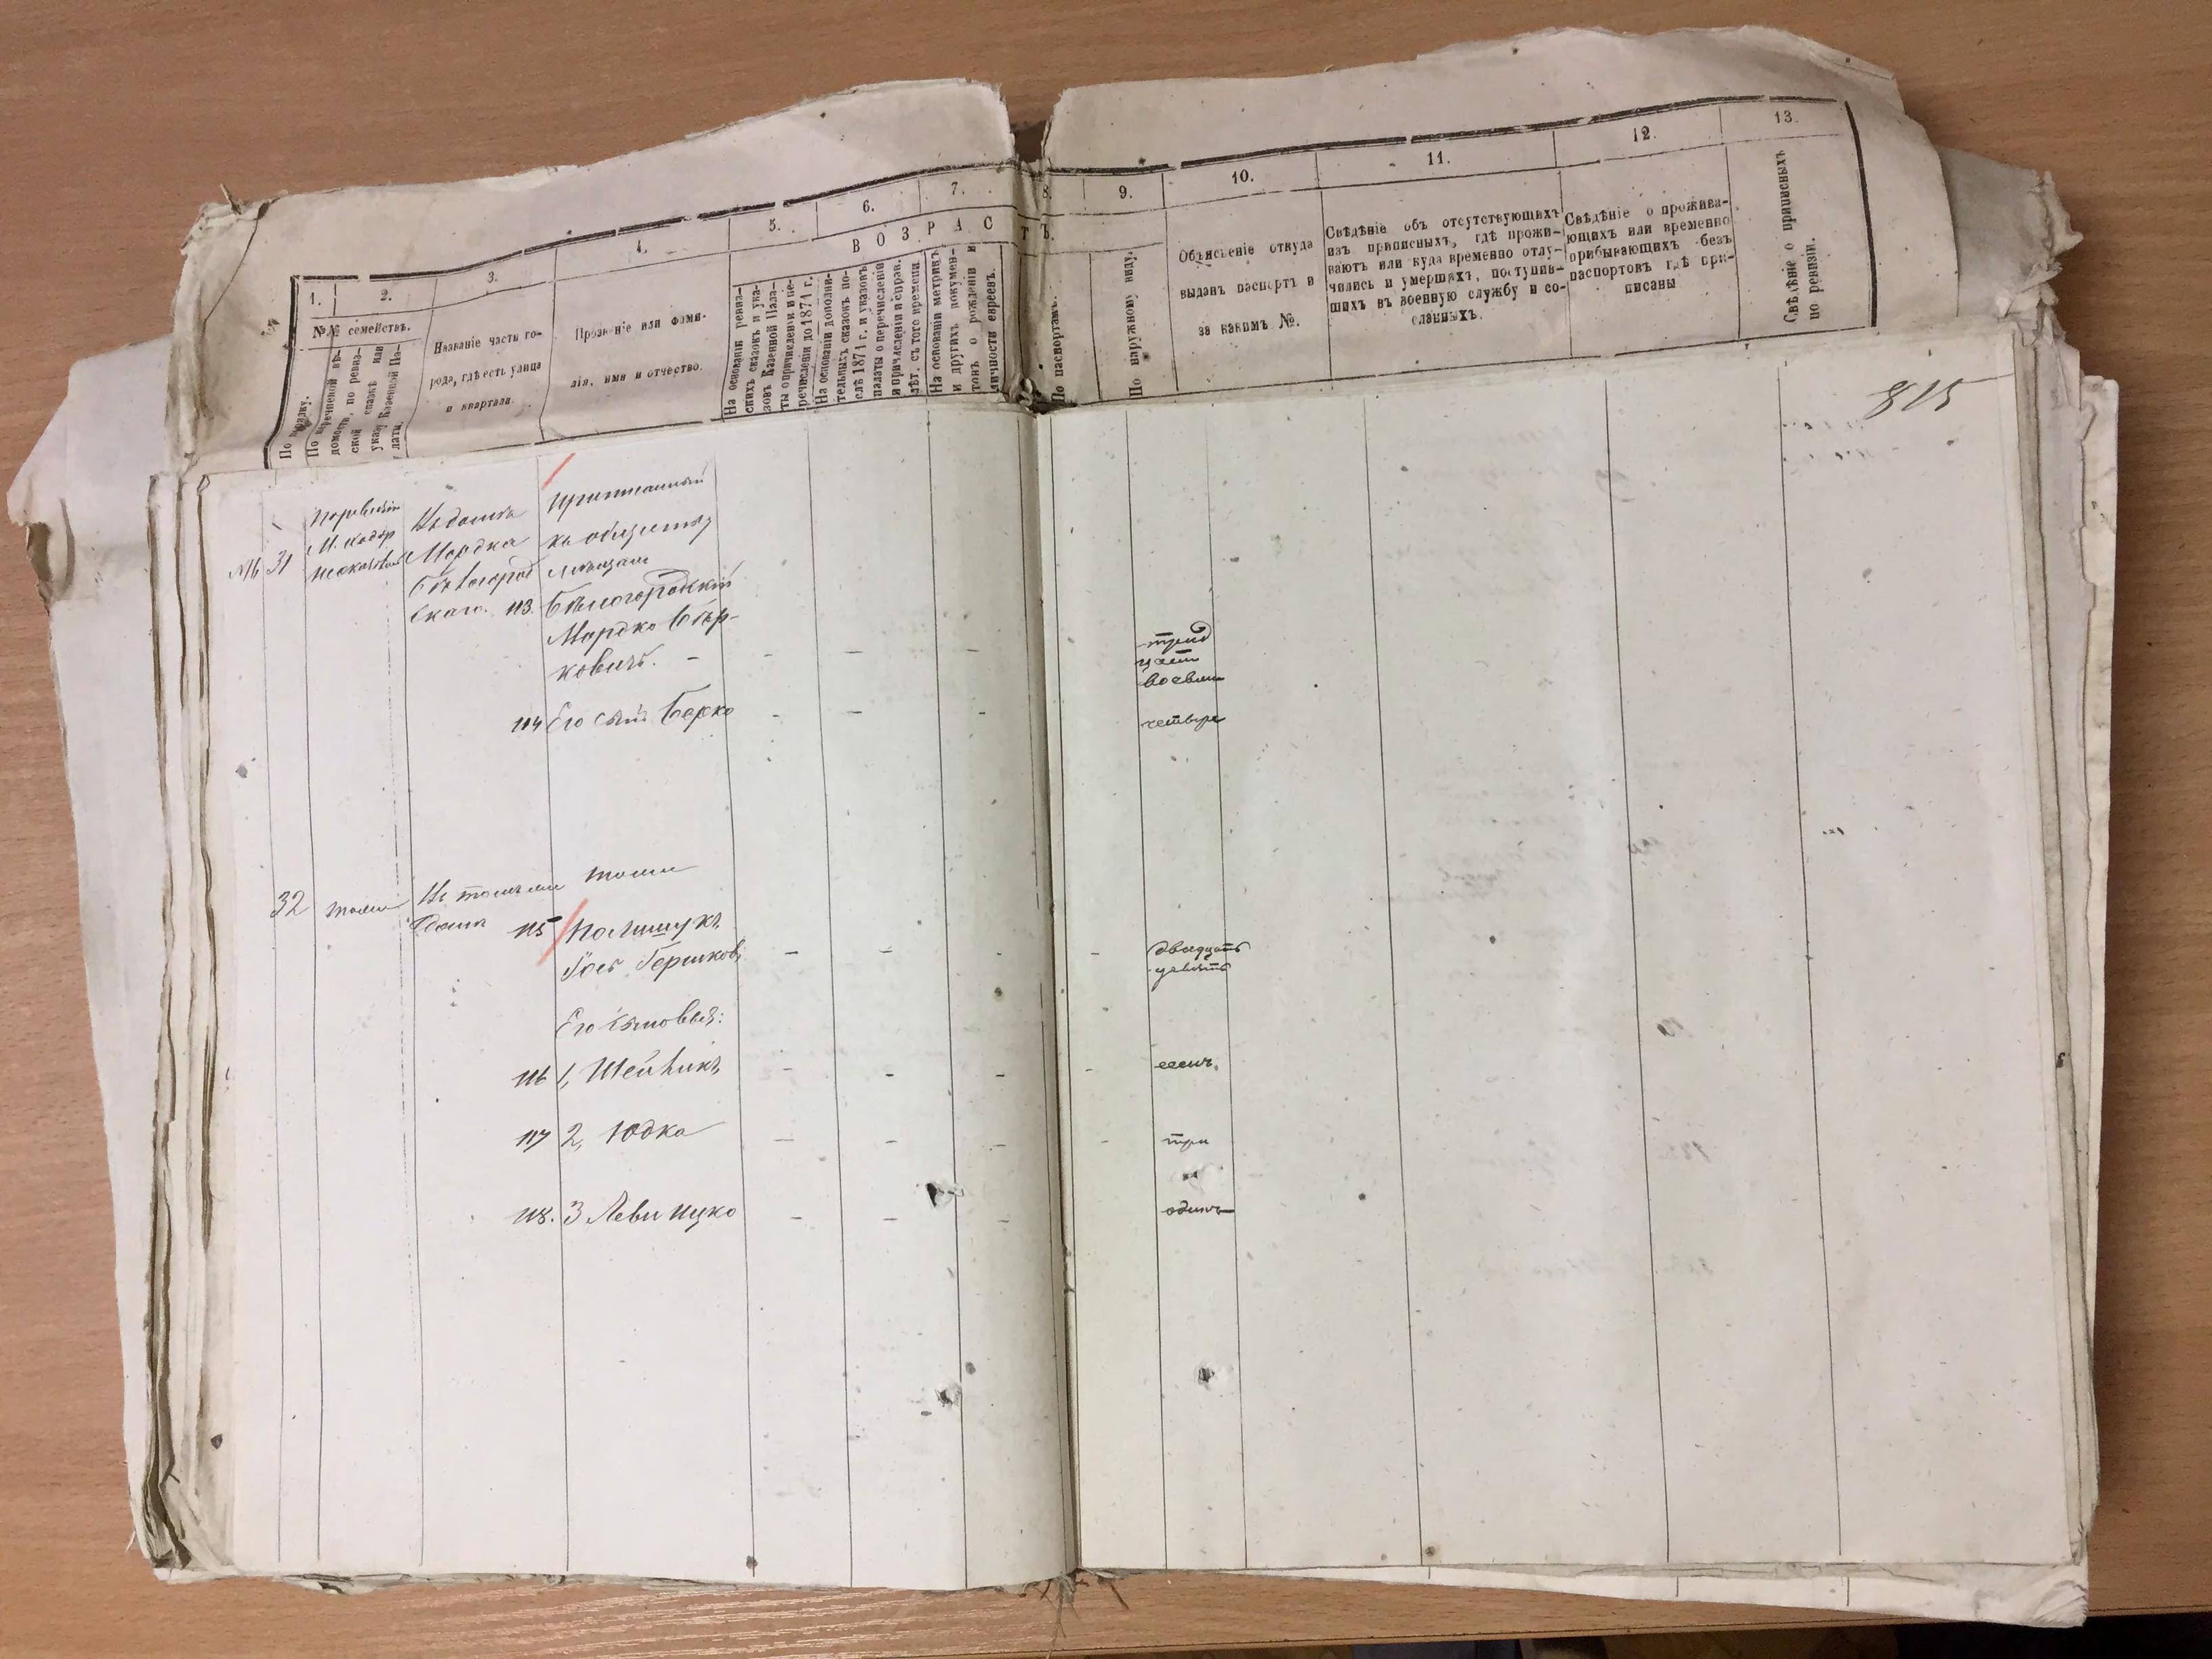 1.
2.
3.
4.
5.
6.
7.
8.
9.
10.
11.
12.
13.
№№ семействъ.
В О З Р А С Т Ъ.
По
По перечневой вѣ-
домости, по ревиз-
ской сказкѣ или
указу Казенной Па-
латы.
Названіе части го-
рода, гдѣ есть улица
и кварталъ.
Прозваніе или фами-
лія, имя и отчество.
На основаніи ревиз-
скихъ сказокъ и ука-
зовъ Казенной Пала-
ты о причисленіи и пе-
речисленіи до 1871 г.
На основаніи дополни-
тельныхъ сказокъ по-
слѣ 1871 г. и указовъ
палаты о перечисленіи
и причисленіи и справ.
лѣт. съ того времени.
На основаніи метрикъ
и другихъ докумен-
товъ о рожденіи и
личности евреевъ.
По паспортамъ.
По наружному виду.
Объясненіе откуда
выданъ паспортъ и
за какимъ №.
Свѣдѣніе объ отсутствующихъ
изъ приписныхъ, гдѣ прожи-
ваютъ или куда временно отлу-
чились и умершихъ, поступив-
шихъ въ военную службу и со-
сланныхъ.
Свѣдѣніе о прожива-
ющихъ или временно
прибывающихъ безъ
паспортовъ гдѣ при-
писаны
Свѣдѣніе о приписныхъ
по ревизіи.
815
31
Мордка
113.
къ обществу
мѣщанъ
Бѣлогородскій
Мордко Бер-
ковичъ. -
трид
цать
восемь
114 Его сынъ Берко
четыре
32
тоже
тоже
домѣ
115 Полищукъ
Гершков.
двадцать
девять
Его сыновья:
116 1, Шейникъ
семь.
117 2, Юдка
три
118. 3 Леви Ицко
одинъ